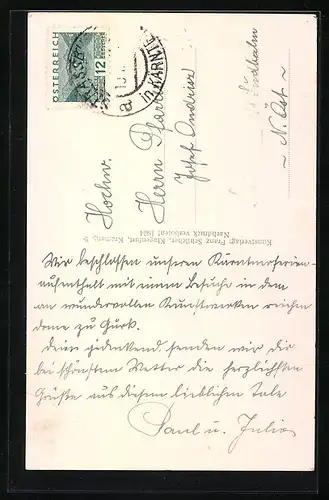 ÖSTERREICH
12
GROSCHEN
STRASSBURG
a
in KÄRNTEN
Hochw.
Herrn Pfarrer
Josef
~ N. Öst ~
Kunstverlag: Franz Schilcher, Klagenfurt, Kramerg. 9
Nachdruck verboten! 1934
Wir beschlossen unseren Kärntnerferien-
aufenthalt mit einem Besuche in dem
an wundervollen Kunstwerken reichen
Dome zu Gurk.
Dein gedenkend, senden wir dir
bei schönstem Wetter die herzlichsten
Grüße aus diesem lieblichen Tale
Paul u. Julia